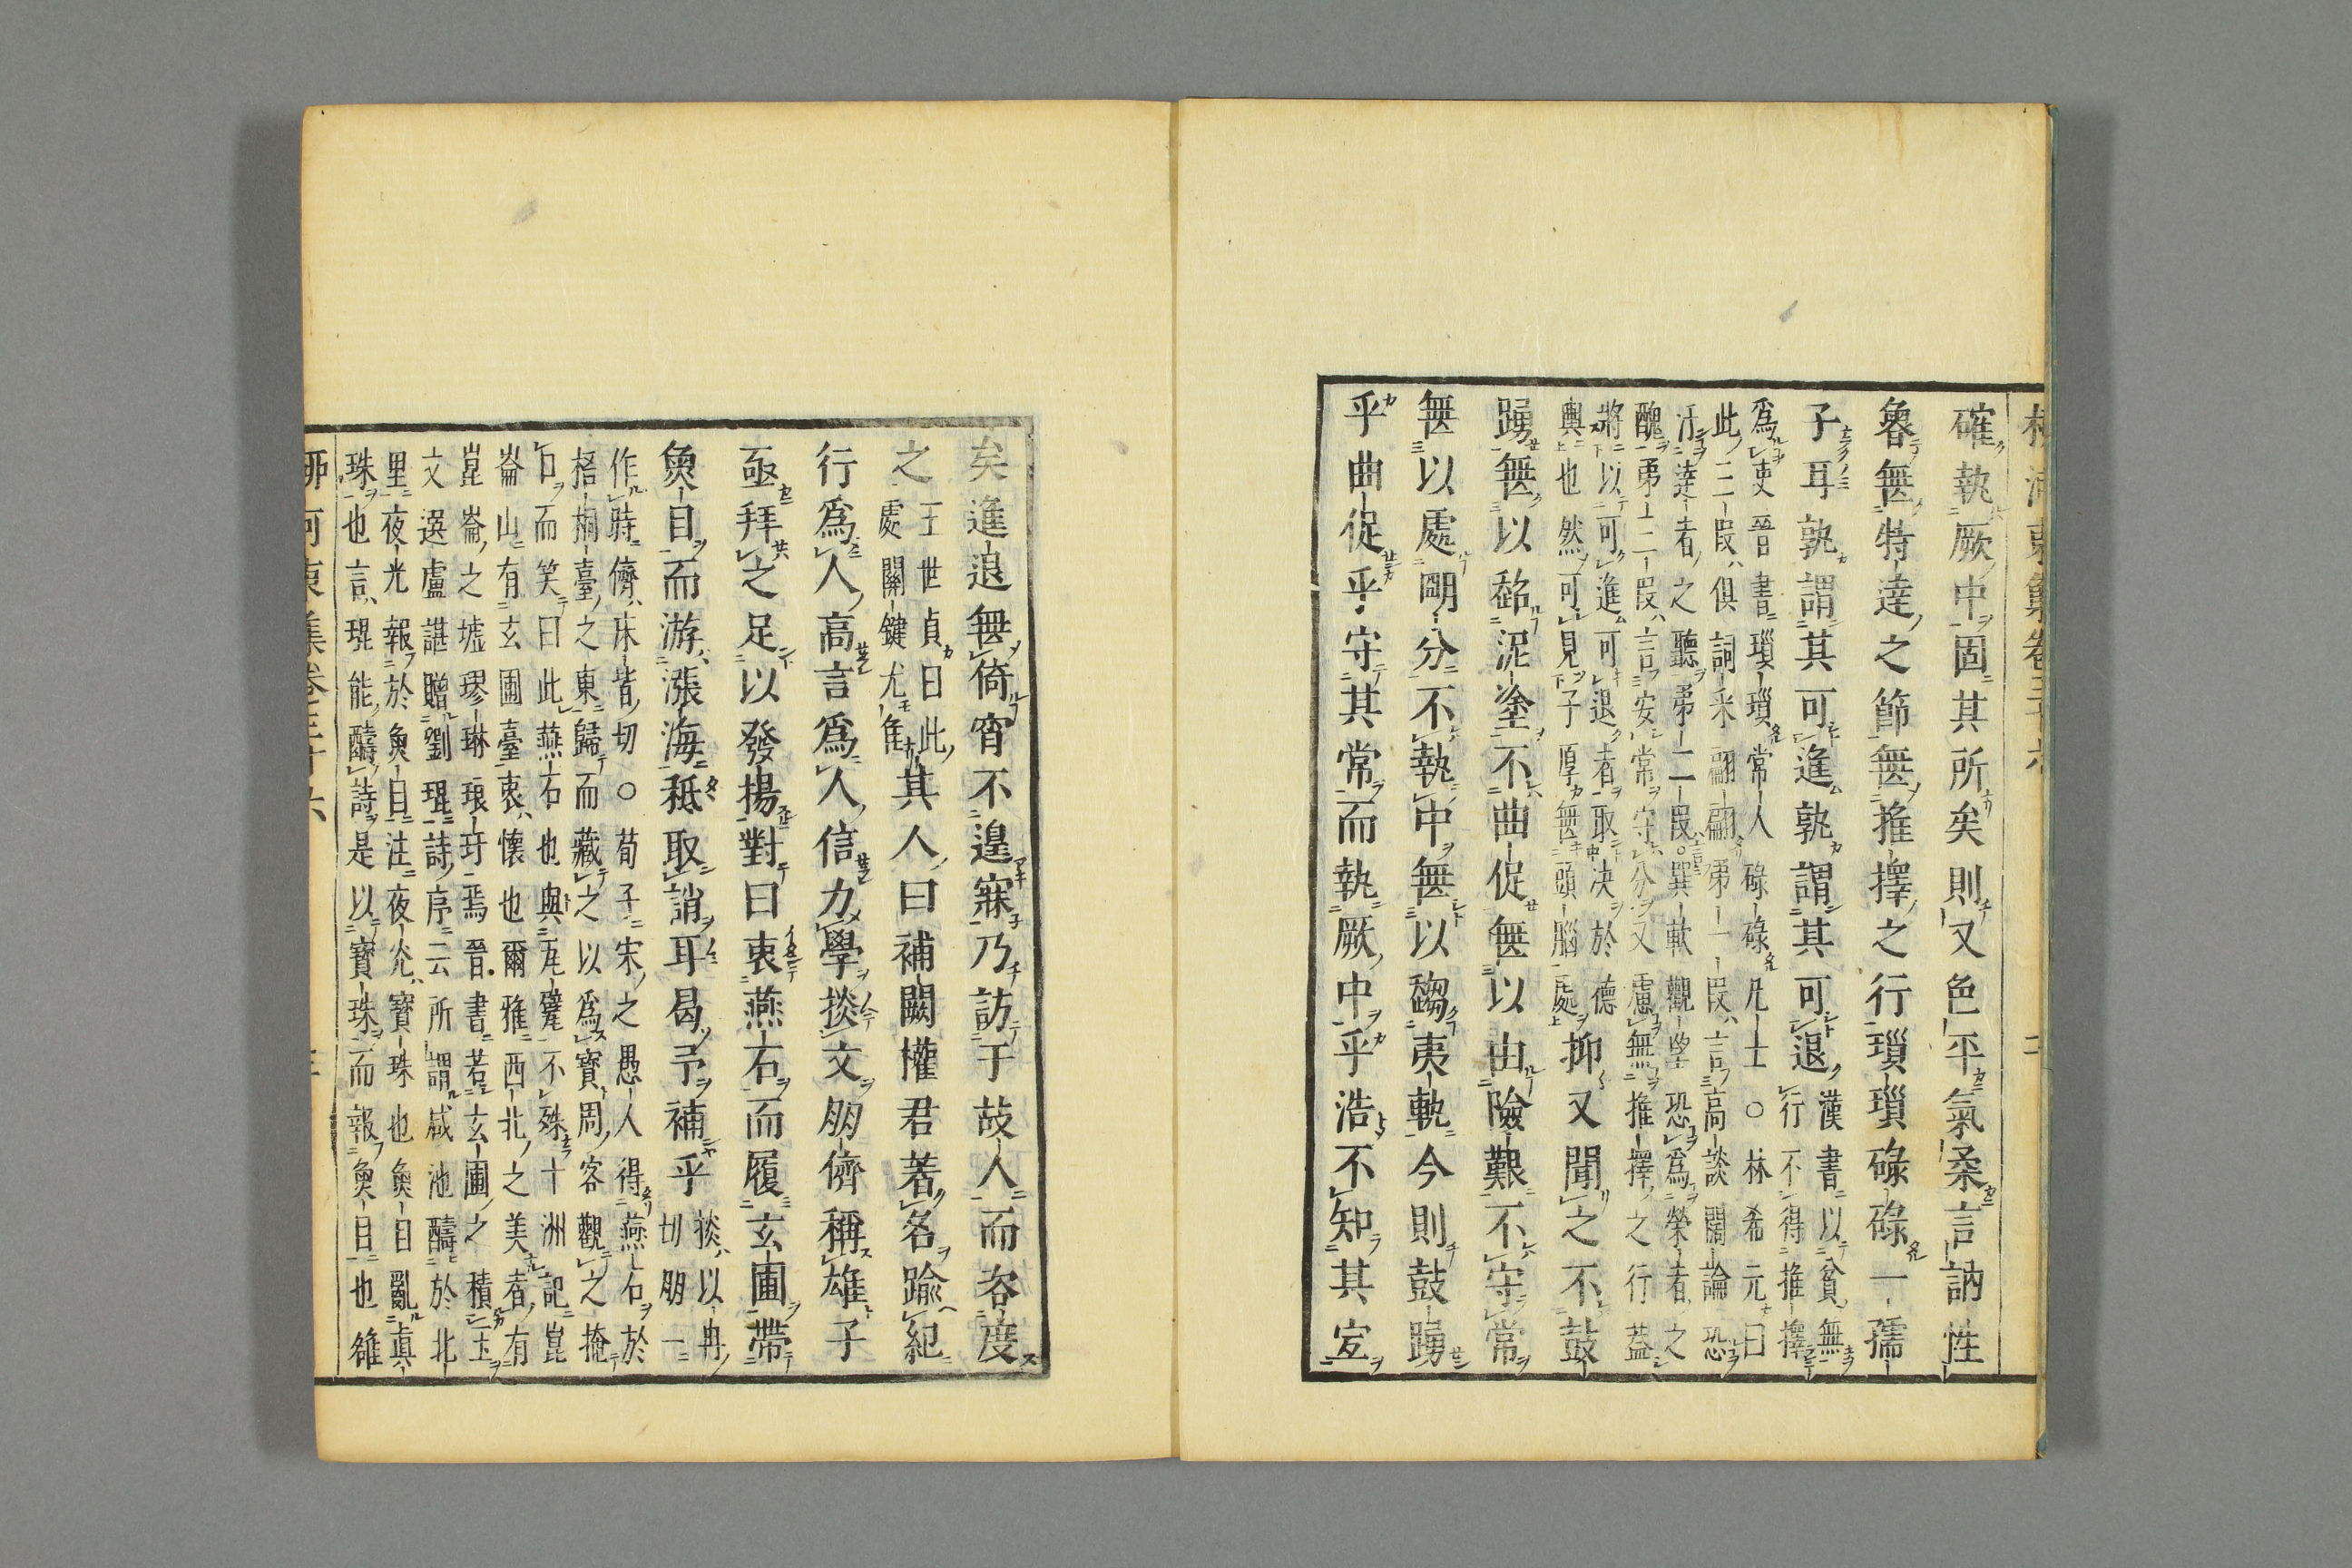 柳河東集卷三十六 二
確執厥中固其所矣則又色平氣柔言訥性
魯無特達之節無推擇之行瑣瑣碌碌一孺
子耳孰謂其可進孰謂其可退漢書以貧無
行不得推擇
為吏晉書瑣瑣常人碌碌凡士○林希元曰
此二一段俱詞采翩翩弟一段言高談闊論恐
汙達者之聽弟二段巽軟觀望恐為榮者之
醜弟二一段言安常守分又慮無推擇之行蓋
將以可進可退者取決於德
輿也然可見子厚無頭腦處
抑又聞之不鼓
踴無以超泥塗不曲促無以由險艱不守常
無以處明分不執中無以蹈夷軌今則鼓踴
乎曲促乎守其常而執厥中乎浩不知其宜
矣進退無倚宵不遑寐乃訪于故人而咨度
之王世貞曰此
處關鍵尤雋
其人曰補闕權君著名踰紀
行為人高言為人信力學掞文朋儕稱雄子
亟拜之足以發揚對曰衷燕石而履玄圃帶
魚目而游漲海秪取誚耳曷予補乎掞以冉
切朋一
作時儕床皆切○荀子宋之愚人得燕石於
梧桐臺之東歸而藏之以為寶周客觀之掩
口而笑曰此燕石也與瓦甓不殊十洲記崑
崙山有玄圃臺衷懷也爾雅西北之美者有
崑崙之墟璆琳琅玕焉晉書若玄圃之積玉
文選盧諶贈劉琨詩序云所謂咸池酬於北
里夜光報於魚目注夜光寶珠也魚目亂真
珠也言琨能酬詩是以寶珠而報魚目也雖
柳河東集卷三十六 三